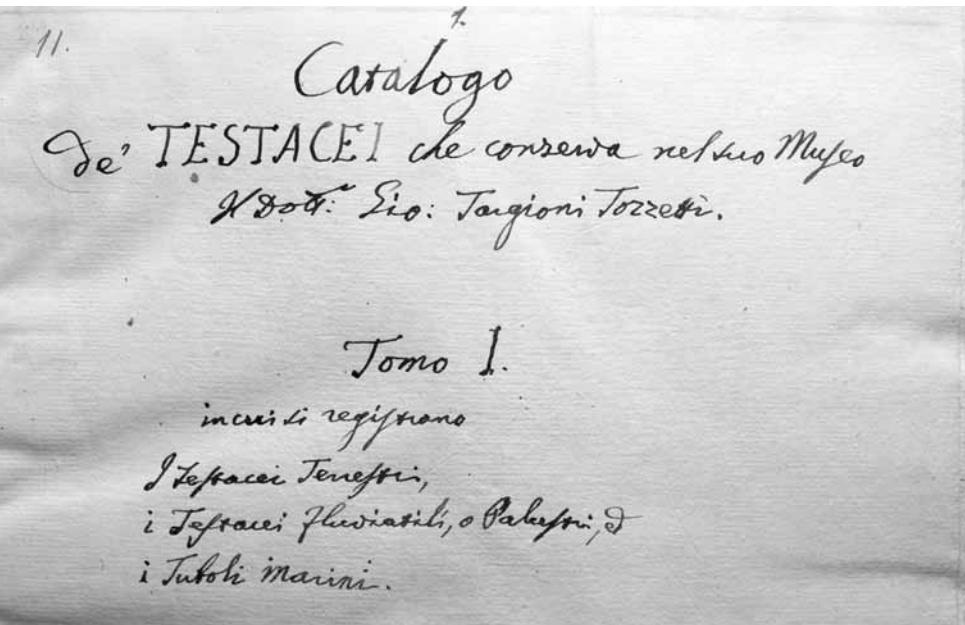 11.
1.
Catalogo
de' TESTACEI che conserva nel suo Museo
Il Dott.e Gio: Targioni Tozzetti.
Tomo I.
in cui si registrano
I Testacei Terrestri,
i Testacei fluviatili, o Palustri, ed
i Tuboli Marini.